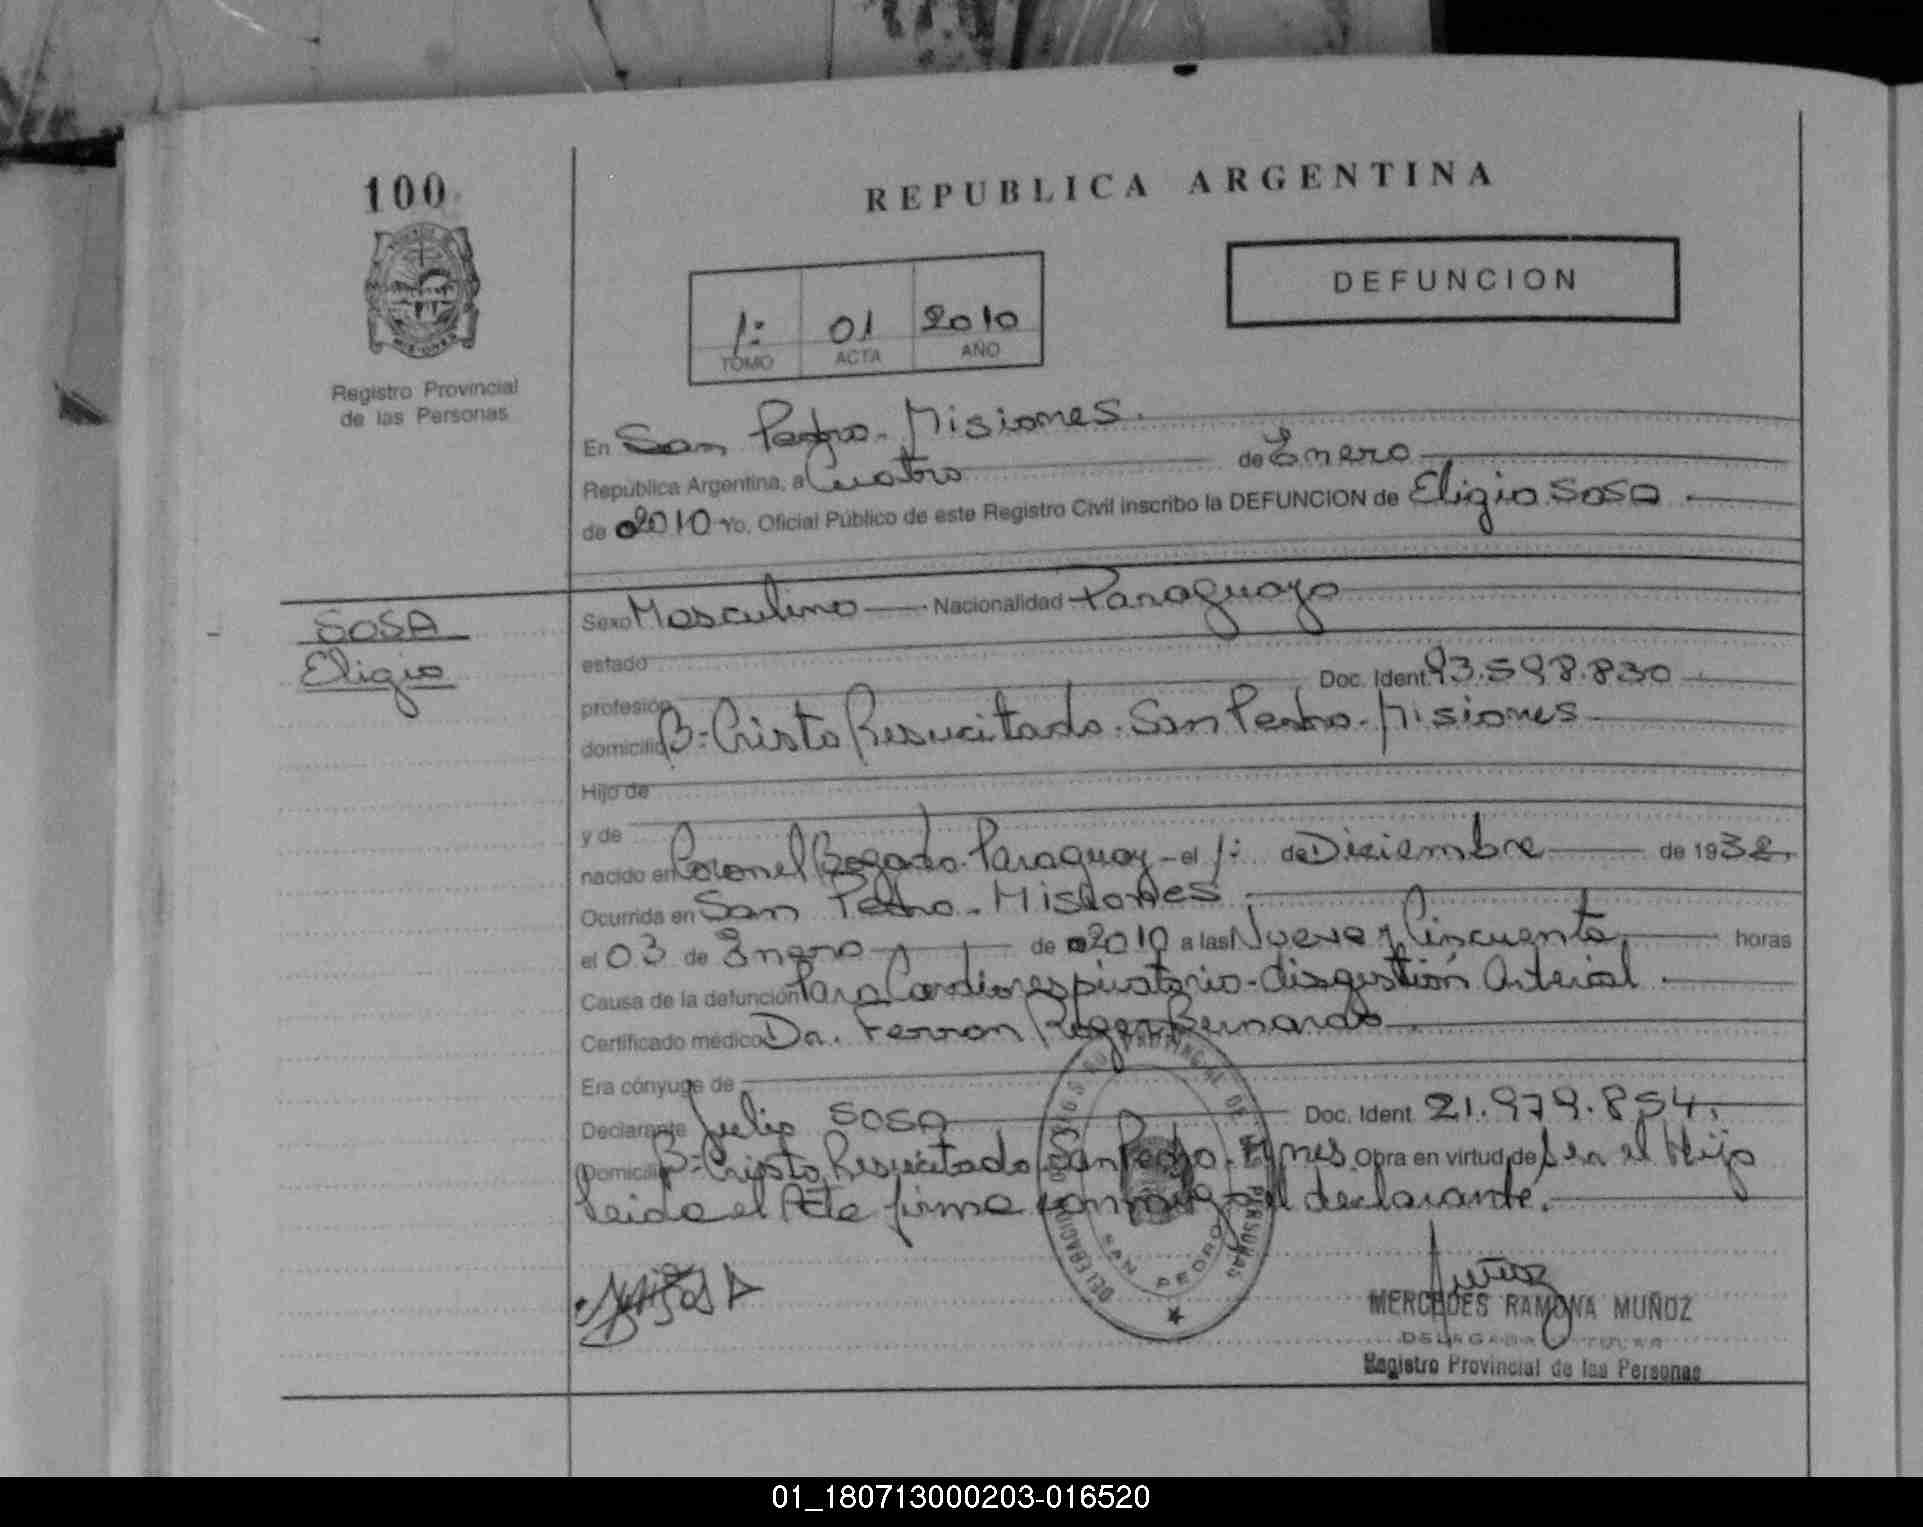 100
REPUBLICA ARGENTINA
DEFUNCION
1: 01 2010
TOMO ACTA AÑO
Registro Provincial
de las Personas
En San Pedro - Misiones.
República Argentina, a Cuatro de Enero
de 2010 Yo, Oficial Público de este Registro Civil inscribo la DEFUNCION de Eligio SOSA
SOSA
Eligio
Sexo Masculino Nacionalidad Paraguayo
estado
profesión Doc. Ident 93.598.830
domicilio B: Cristo Resucitado. San Pedro - Misiones
Hijo de
y de
nacido en Coronel Bogado. Paraguay - el 1: de Diciembre de 1938.
Ocurrida en San Pedro - Misiones
el 03 de Enero de 2010 a las Nueve y Cincuenta horas
Causa de la defunción Paro Cardiorespiratorio - disgestión Arterial
Certificado médico Dr. Ferron Roger Bernardo
Era cónyuge de
Declarante Julio SOSA Doc. Ident 21.979.854.
Domicilio B: Cristo Resucitado San Pedro - Mnes. Obra en virtud de Ser el Hijo
leida el Acta firma conmigo el declarante.
SAN PEDRO
MERCEDES RAMONA MUÑOZ
DELEGADA TITULAR
Registro Provincial de las Personas
01_180713000203-016520